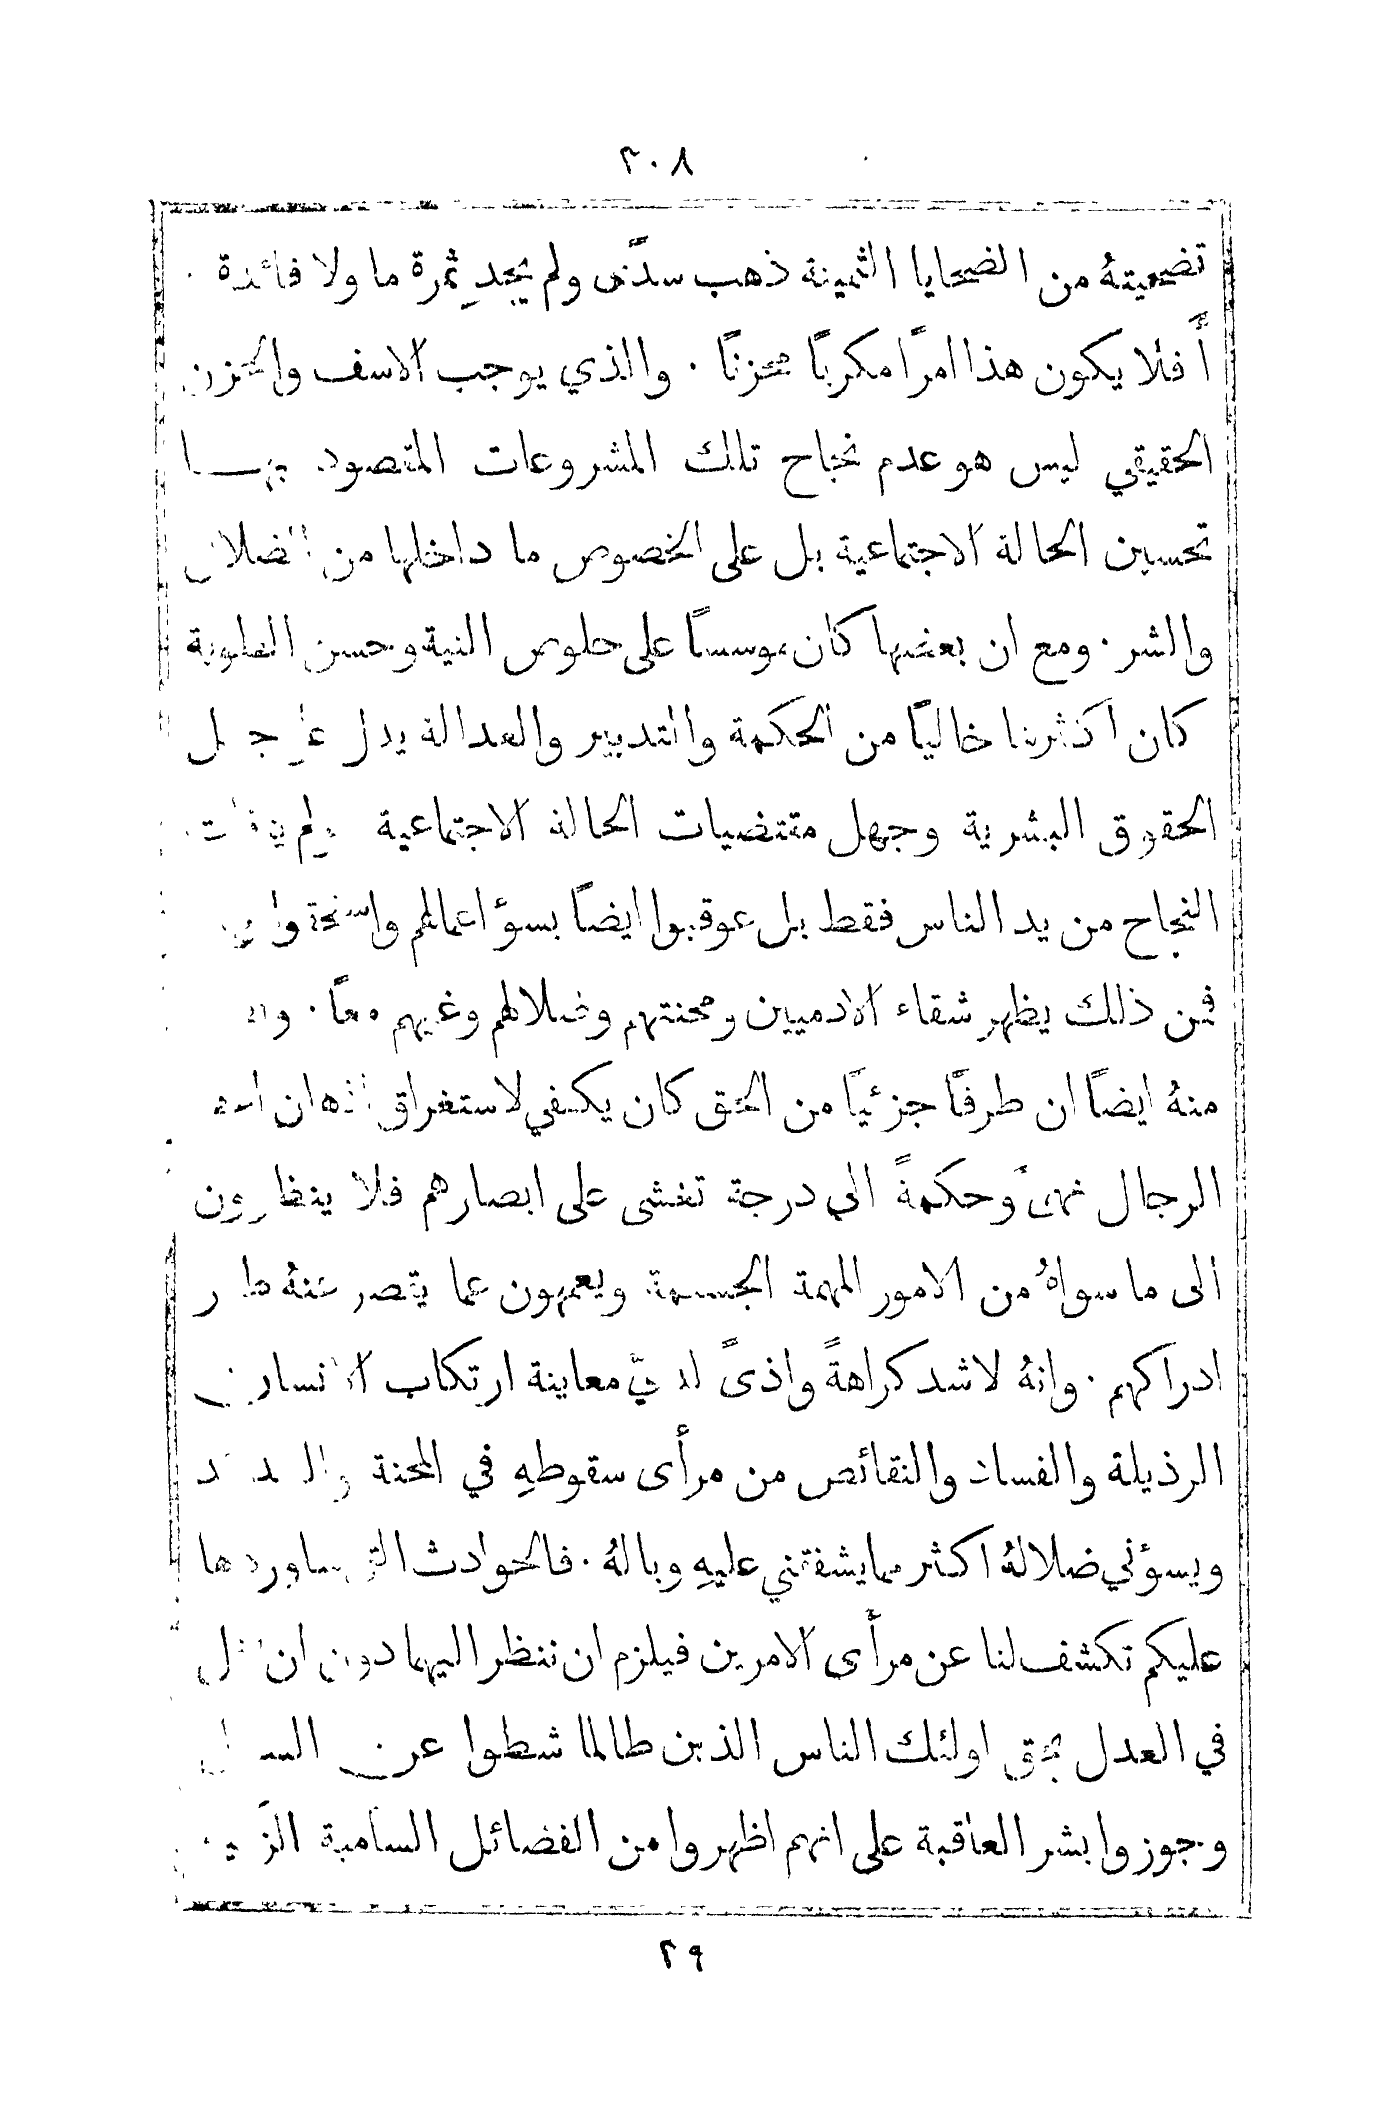 ٣٠٨
تضحيته من الضحايا الثمينة ذهب سدًى ولم يجدِ ثمرة ما ولا فائدة .
أفلا يكون هذا امرًا مكربًا محزنًا . والذي يوجب الاسف والحزن
الحقيقي ليس هو عدم نجاح تلك المشروعات المقصود بها
تحسين الحالة الاجتماعية بل على الخصوص ما داخلها من الضلال
والشر . ومع ان بعضها كان موسسًا على خلوص النية وحسن الطوية
كان اكثرها خاليًا من الحكمة والتدبير والعدالة يدل على جهل
الحقوق البشرية وجهل مقتضيات الحالة الاجتماعية ولم
النجاح من يد الناس فقط بل عوقبوا ايضًا بسوٴ اعمالهم
فمن ذلك يظهر شقاء الادميين ومحنتهم وضلالهم وغيهم معًا .
منهُ ايضًا ان طرفًا جزئيًا من الحق كان يكفي لاستغراق اذهان
الرجال نهىً وحكمةً الى درجة تغشى على ابصارهم فلا ينظرون
الى ما سواهُ من الامور المهمة الجسيمة ويعمهون عما يقصر عنهُ
ادراكهم . وانهُ لاشد كراهةً واذىً لديَّ معاينة ارتكاب الانسان
الرذيلة والفساد والنقائص من مرأى سقوطهِ في المحنة
ويسوٴني ضلالهُ اكثر مما يشفقني عليهِ وبالهُ . فالحوادث التي ساوردها
عليكم تكشف لنا عن مرأى الامرين فيلزم ان ننظر اليهما دون ان
في العدل بحق اولئك الناس الذين طالما شطوا عن السبيل
وجوزوا بشر العاقبة على انهم اظهروا من الفضائل السامية
٢٩